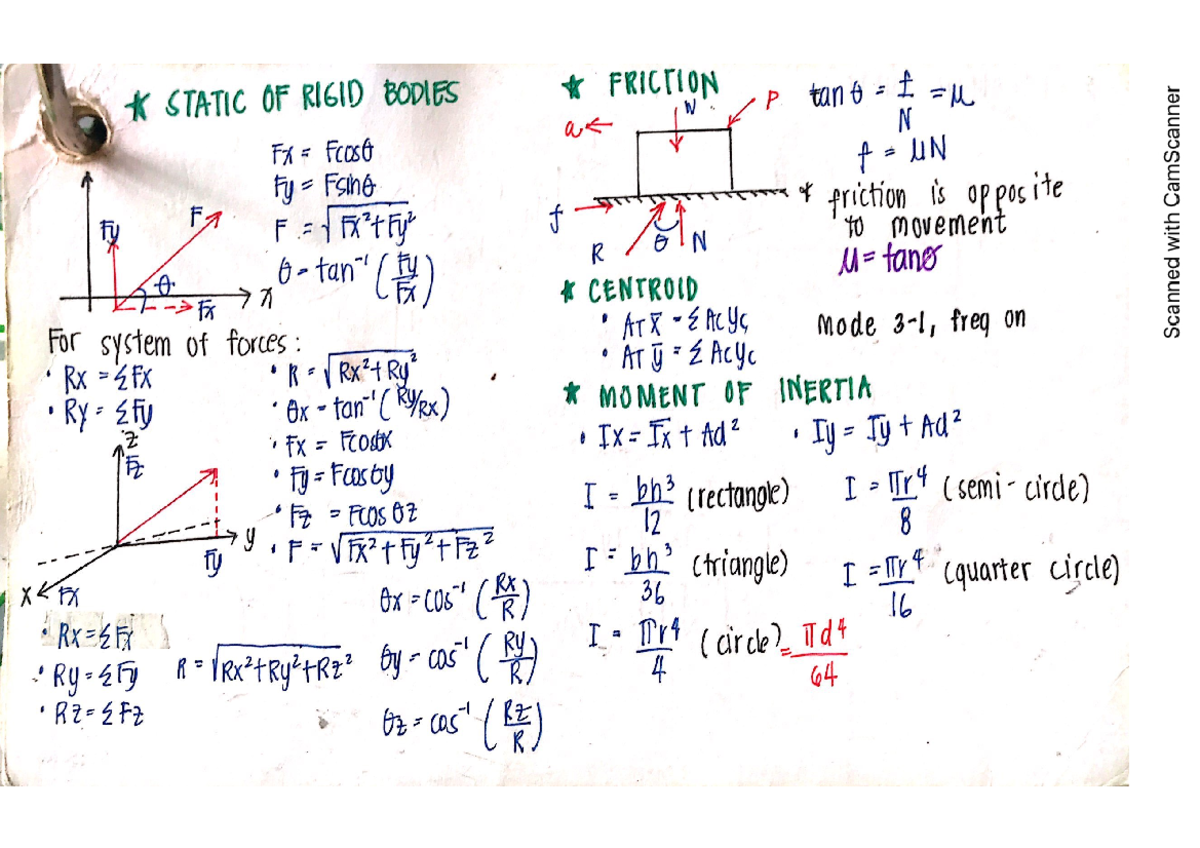 * STATIC OF RIGID BODIES
Fx = Fcosθ
Fy = Fsinθ
F = √Fx²+Fy²
θ = tan⁻¹ (Fy/Fx)
Fy
F
θ
x
Fx
For system of forces:
• Rx = ΣFx
• Ry = ΣFy
• R = √Rx²+Ry²
• θx = tan⁻¹ (Ry/Rx)
• Fx = Fcosθx
• Fy = Fcosθy
• Fz = Fcosθz
• F = √Fx²+Fy²+Fz²
z
Fz
y
Fy
x
Fx
• Rx = ΣFx
• Ry = ΣFy
• Rz = ΣFz
R = √Rx²+Ry²+Rz²
θx = cos⁻¹ (Rx/R)
θy = cos⁻¹ (Ry/R)
θz = cos⁻¹ (Rz/R)
* FRICTION
a
W
P
f
R
θ
N
tan θ = f/N = μ
f = μN
* friction is opposite
to movement
μ = tanθ
* CENTROID
• AT x̄ = Σ Ac yc
• AT ȳ = Σ Ac yc
Mode 3-1, freq on
* MOMENT OF INERTIA
• Ix = I̅x + Ad²
• Iy = I̅y + Ad²
I = bh³/12 (rectangle)
I = πr⁴/8 (semi-circle)
I = bh³/36 (triangle)
I = πr⁴/16 (quarter circle)
I = πr⁴/4 (circle) = πd⁴/64
Scanned with CamScanner